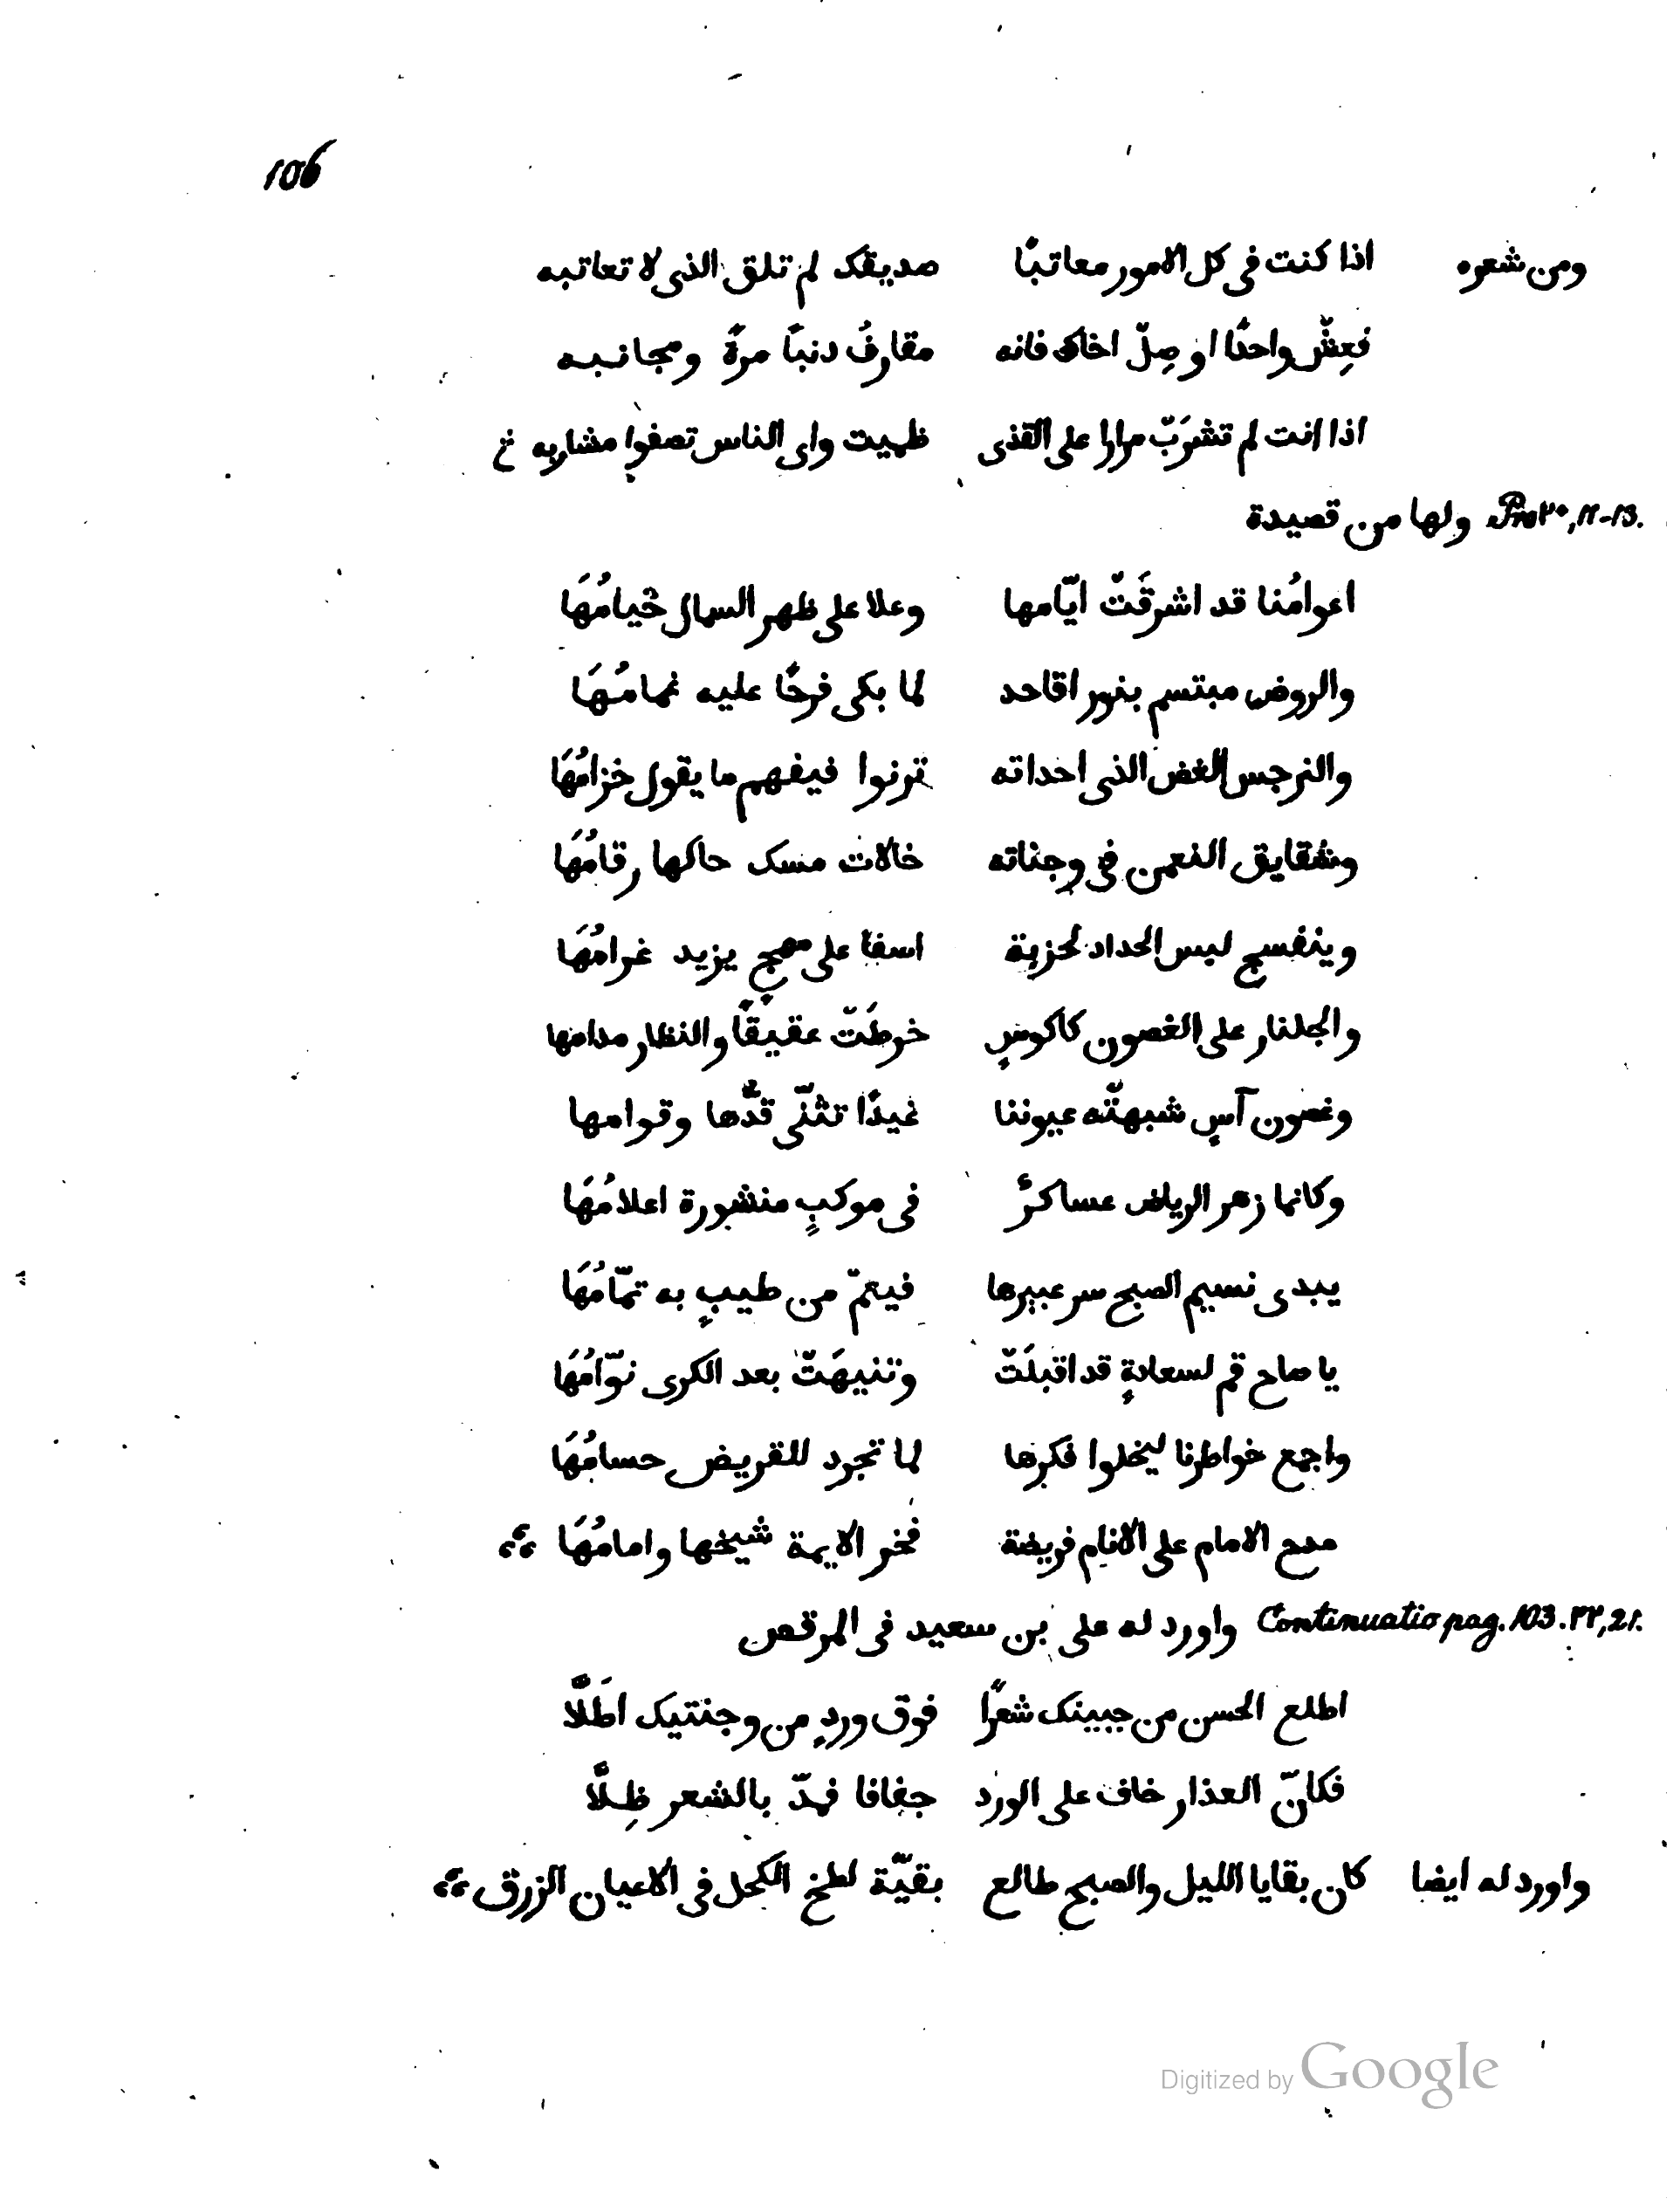 106
ومن شعره اذا كنت فى كل الامور معاتبًا صديقك لم تلق الذى لا تعاتبه
فعِشْ واحدًا او صِلْ اخاك فانه مقارفُ دنبًا مرةً ومجانبه
اذا انت لم تشرَبْ مرارا على القذى ظميت واى الناس تصفوا مشاربه
Pro ٢٠, ١٢-13. ولها من قصيدة
اعوامُنا قد اشرقَتْ ايّامها وعلا على ظهر السمال خيامُهَا
والروض مبتسم بنور اقاحد لما بكى فرحًا عليه غمامُهَا
والنرجس الغض الذى احداته ترنوا فيفهم ما يقول خزامُهَا
وشقايق النعمن فى وجناته خالات مسك حاكها رقامُهَا
وينفسج لبس الحداد لحزبة اسفا على مهج يزيد غرامُهَا
والجلنار على الغصون كاكوسٍ خرطَتْ عقيقًا والنظار مدامها
وغصون آسٍ شبهتْه عيوننا غيدًا تثنّى قدُّها وقوامها
وكانما زهر الرياض عساكرٌ فى موكبٍ منشورة اعلامُهَا
يبدى نسيم الصبح سر عبيرها فيعمّ من طيبٍ به تمّامُهَا
يا صاح قم لسعادةٍ قد اقبلَتْ وتنبهَتْ بعد الكرى نوّامُهَا
واجمع خواطرنا ليخلوا فكرها لما تجرد للقريض حسامُهَا
مدح الامام على الانام فريضة فخر الايمة شيخها وامامُهَا
Continuatio pag. 103. ٢٢, 21. واورد له على بن سعيد فى المرقص
اطلع الحسن من جبينك شعرًا فوق وردٍ من وجنتيك اطَلّا
فكانّ العذار خاف على الورد جفافا فمدّ بالشعر ظِلّا
واورد له ايضا كان بقايا الليل والصبح طالع بقيّة لطخ الكحل فى الاعيان الزرق
Digitized by Google